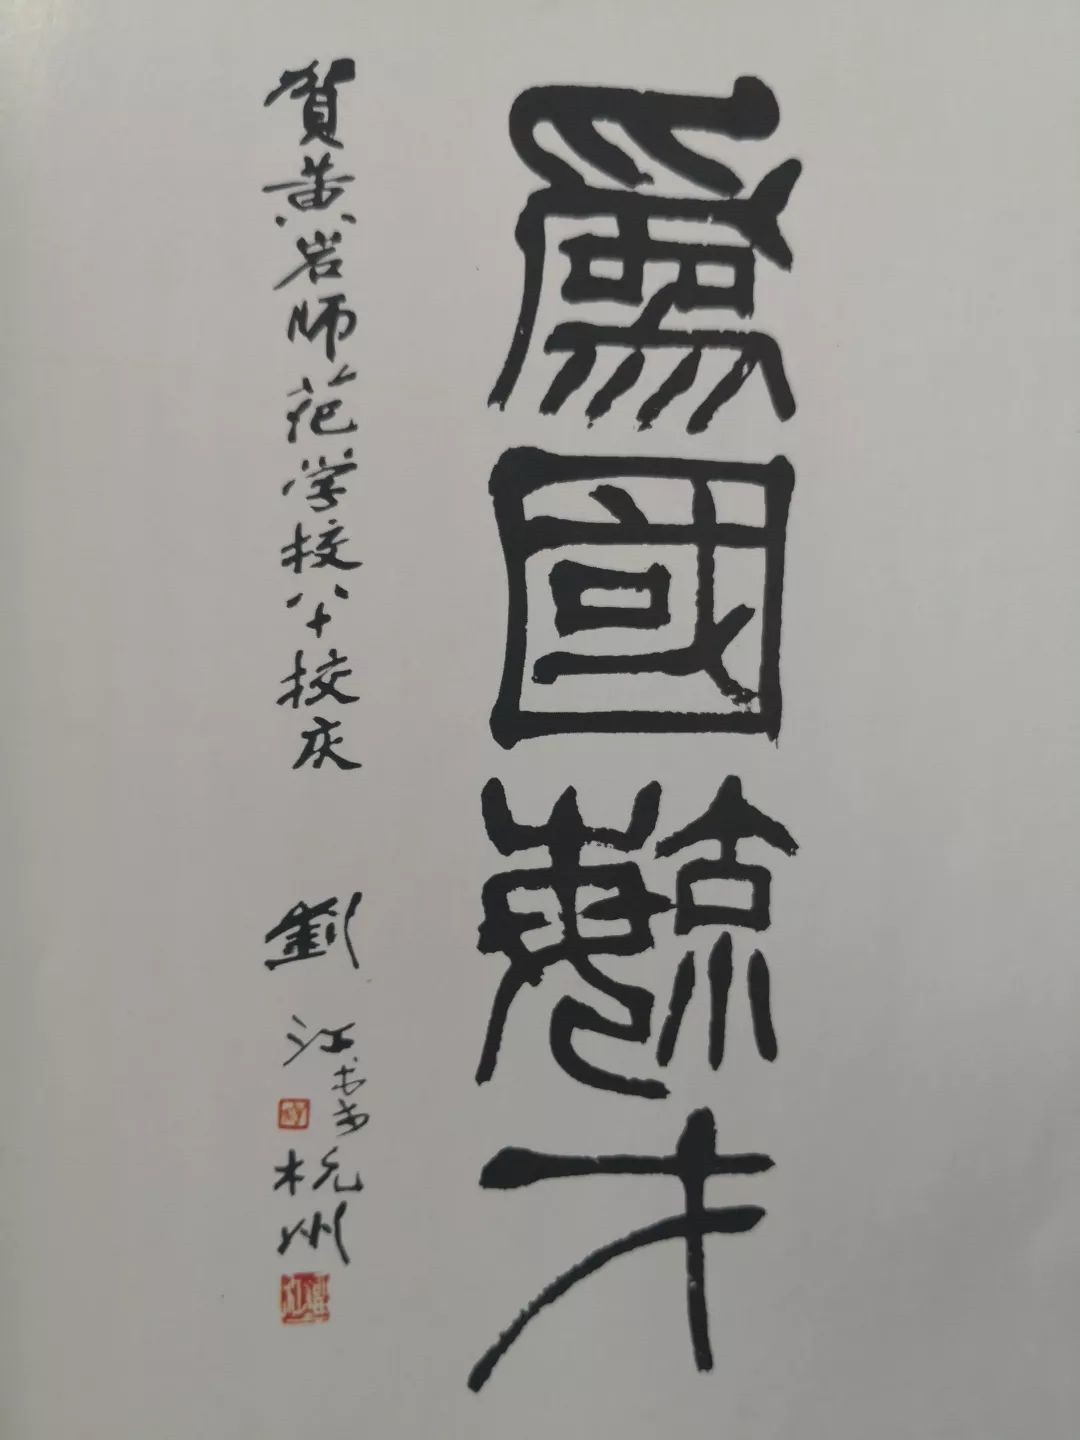 爲國毓才
賀黄岩师范学校八十校庆
劉江书于杭州